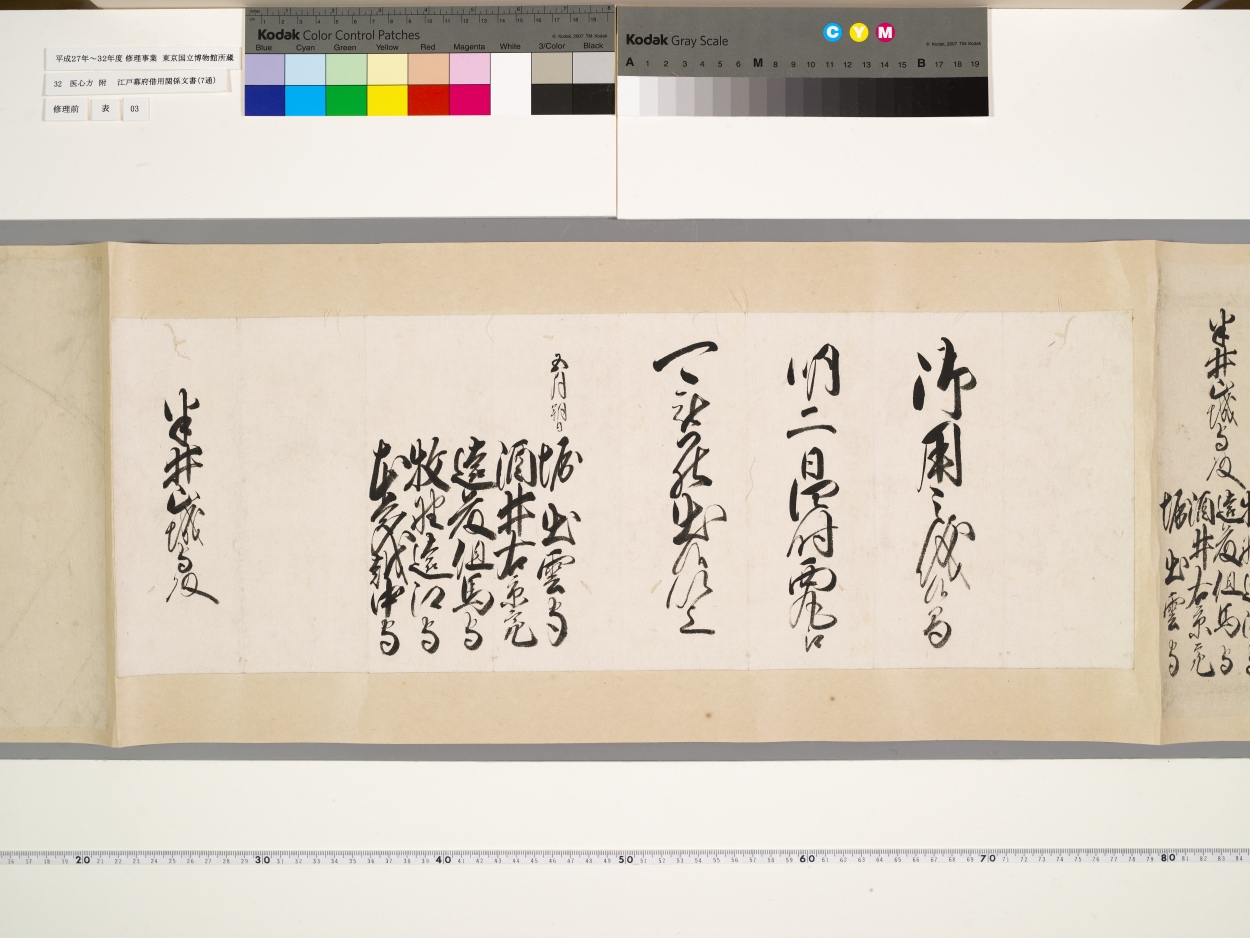 平成27年～32年度 修理事業 東京国立博物館所蔵
32 医心方 附 江戸幕府借用関係文書(7通)
修理前 表 03
Kodak Color Control Patches
Blue Cyan Green Yellow Red Magenta White 3/Color Black
© Kodak, 2007 TM: Kodak
Kodak Gray Scale
C Y M
© Kodak, 2007 TM: Kodak
A 1 2 3 4 5 6 M 8 9 10 11 12 13 14 15 B 17 18 19
半井山城守殿
牧野遠江守
遠藤但馬守
酒井右京亮
堀出雲守
御用之儀候間
明二日
可
出候以上
五月朔日
堀出雲守
酒井右京亮
遠藤但馬守
牧野遠江守
本多越中守
半井山城守殿
20 30 40 50 60 70 80